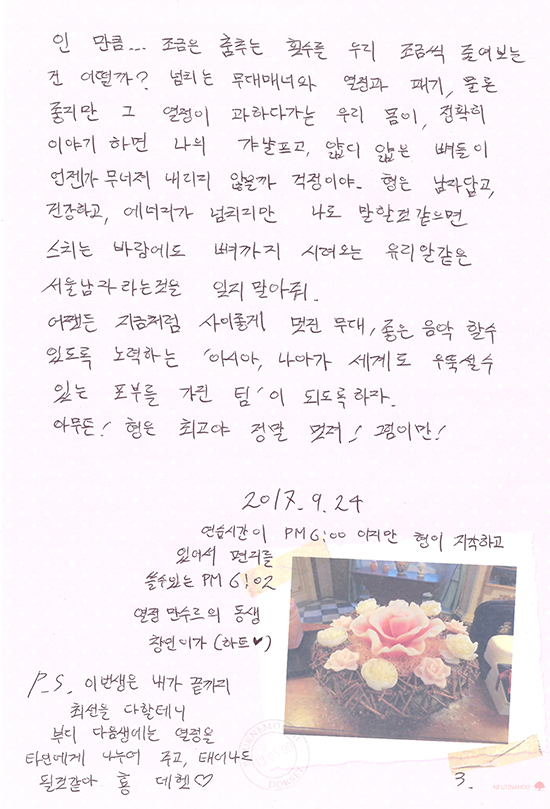 인 만큼... 조금은 춤추는 횟수를 우리 조금씩 줄여보는
건 어떨까? 넘치는 무대매너와 열정과 패기, 물론
좋지만 그 열정이 과하다가는 우리 몸이, 정확히
이야기 하면 나의 갸냘프고, 얇디 얇은 뼈들이
언젠가 무너져 내리지 않을까 걱정이야. 형은 남자답고,
건강하고, 에너지가 넘치지만 나로 말할것 같으면
스치는 바람에도 뼈까지 시려오는 유리알같은
서울남자라는것을 잊지 말아줘.
어쨌든 지금처럼 사이좋게 멋진 무대, 좋은 음악 할수
있도록 노력하는 '아시아, 나아가 세계로 우뚝설수
있는 포부를 가진 팀'이 되도록하자.
아무튼! 형은 최고야 정말 멋져! 그럼이만!
2017. 9. 24
연습시간이 PM 6:00 이지만 형이 지각하고
있어서 편지를
쓸수있는 PM 6:02
열정 만수르의 동생
창민이가 (하트♥)
P.S. 이번생은 내가 끝까지
최선을 다할테니
부디 다음생에는 열정을
타인에게 나누어 주고, 태어나도
될것같아 홍 데헷♡
3.